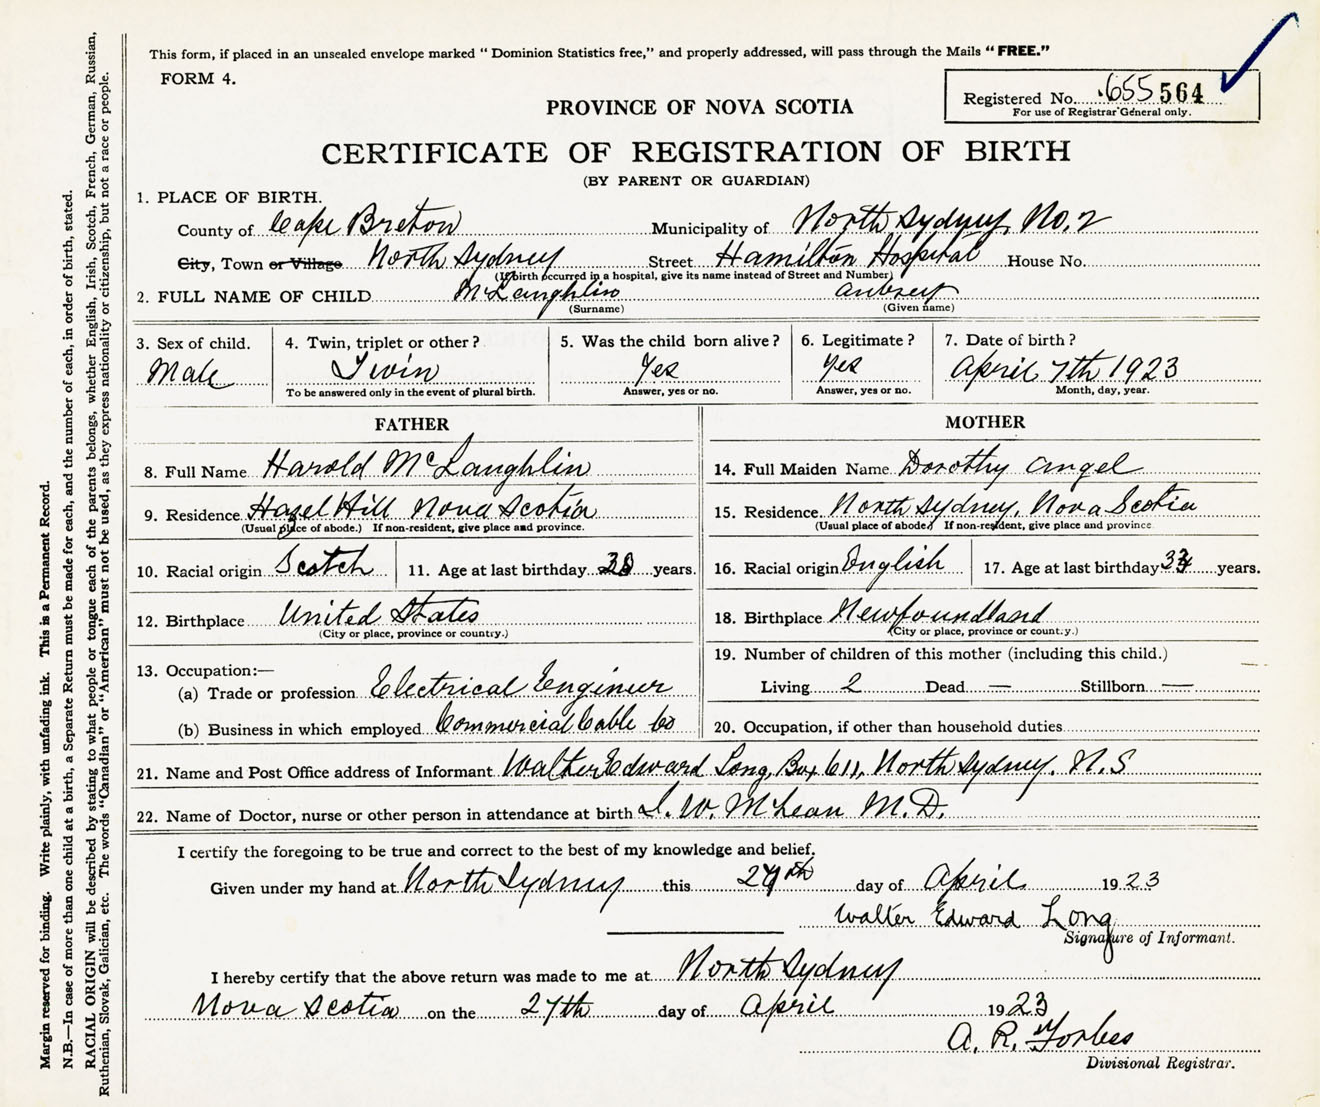 This form, if placed in an unsealed envelope marked “ Dominion Statistics free,” and properly addressed, will pass through the Mails “ FREE.”
FORM 4.
Registered No. 655 564
For use of Registrar General only.
PROVINCE OF NOVA SCOTIA
CERTIFICATE OF REGISTRATION OF BIRTH
(BY PARENT OR GUARDIAN)
1. PLACE OF BIRTH.
County of Cape Breton Municipality of North Sydney, No. 2
City, Town or Village North Sydney Street Hamilton Hospital House No.
(If birth occurred in a hospital, give its name instead of Street and Number)
2. FULL NAME OF CHILD McLaughlin Aubrey
(Surname) (Given name)
3. Sex of child. 4. Twin, triplet or other? 5. Was the child born alive? 6. Legitimate? 7. Date of birth?
Male Twin Yes Yes April 7th 1923
To be answered only in the event of plural birth. Answer, yes or no. Answer, yes or no. Month, day, year.
FATHER
8. Full Name Harold McLaughlin
9. Residence Hazel Hill Nova Scotia
(Usual place of abode.) If non-resident, give place and province.
10. Racial origin Scotch 11. Age at last birthday years.
12. Birthplace United States
(City or place, province or country.)
13. Occupation:—
(a) Trade or profession Electrical Engineer
(b) Business in which employed Commercial Cable Co
MOTHER
14. Full Maiden Name Dorothy Angel
15. Residence North Sydney, Nova Scotia
(Usual place of abode) If non-resident, give place and province
16. Racial origin English 17. Age at last birthday years.
18. Birthplace Newfoundland
(City or place, province or country.)
19. Number of children of this mother (including this child.)
Living 2 Dead — Stillborn —
20. Occupation, if other than household duties
21. Name and Post Office address of Informant Walter Edward Long, Box 611, North Sydney. N.S
22. Name of Doctor, nurse or other person in attendance at birth W. McLean M.D.
I certify the foregoing to be true and correct to the best of my knowledge and belief.
Given under my hand at North Sydney this 27th day of April 1923
Walter Edward Long
Signature of Informant.
I hereby certify that the above return was made to me at North Sydney
Nova Scotia on the 27th day of April 1923
A. R. Forbes
Divisional Registrar.
Margin reserved for binding. Write plainly, with unfading ink. This is a Permanent Record.
N.B.—In case of more than one child at a birth, a Separate Return must be made for each, and the number of each, in order of birth, stated.
RACIAL ORIGIN will be described by stating to what people or tongue each of the parents belongs, whether English, Irish, Scotch, French, German, Russian,
Ruthenian, Slovak, Galician, etc. The words “Canadian” or “American” must not be used, as they express nationality or citizenship, but not a race or people.